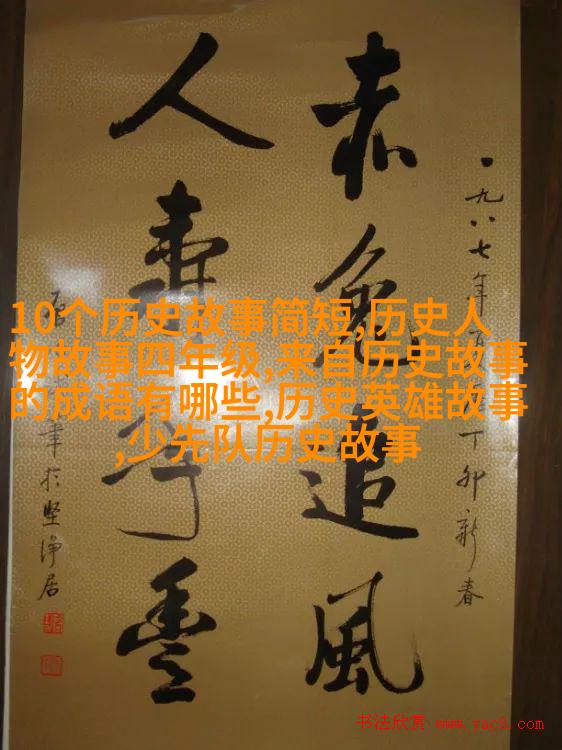 10个历史故事简短,历史人
物故事四年级,来自历史故事
的成语有哪些,历史英雄故事
,少先队历史故事
一九八七年 丁卯新春
赤兔追風
人壽年豐
於坚净居
书法欣赏 www.yac8.com